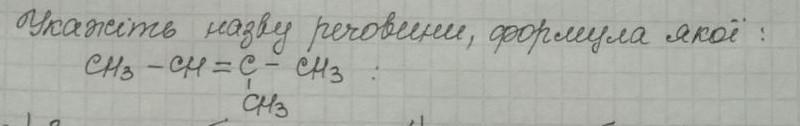 Укажіть назву речовини, формула якої :
CH3 – CH = C – CH3 :
CH3